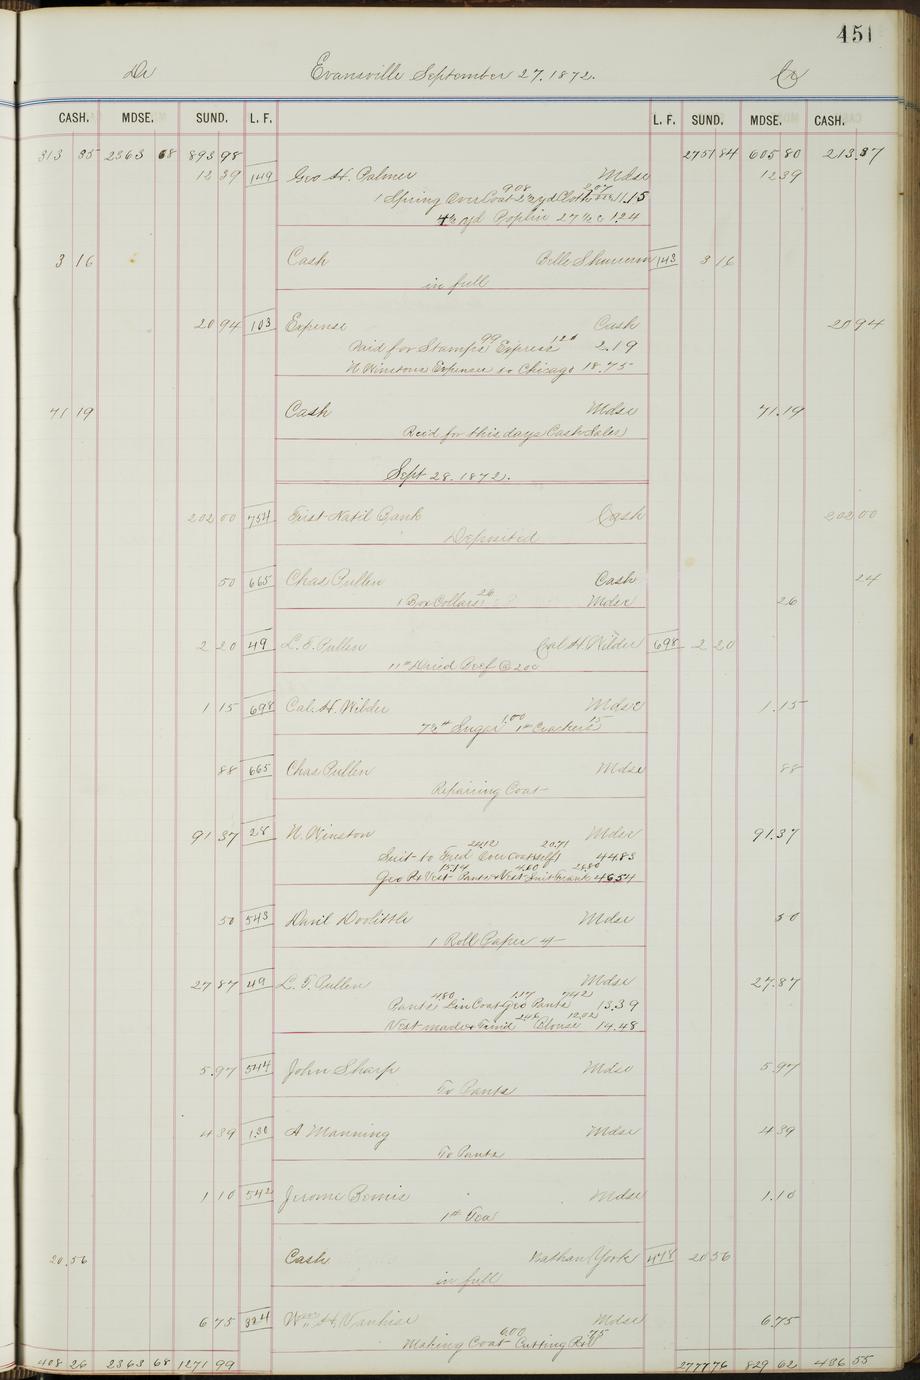 451
Dr Evansville September 27, 1872. Cr
CASH. MDSE. SUND. L. F. L. F. SUND. MDSE. CASH.
313 35 2363 68 893 98 2751 84 605 80 213.37
12 39 149 Geo H. Palmer Mdse 12 39
1 Spring OverCoat 9.08 yd Cloth 2.07 11.15
yd Poplin 27 ½ c 1.24
3 16 Cash Belle 143 3 16
in full
20 94 103 Expense Cash 20 94
Paid for Stamps 99 Express 1.20 2.19
N Winstons Expenses to Chicago 18.75
71 19 Cash Mdse 71.19
Rec'd for this days Cash Sales
Sept 28. 1872.
202 00 754 First Nat'l Bank Cash 202 00
Deposited
50 665 Chas Pullen Cash 24
1 Box Collars 26 Mdse 26
2 20 49 L. T. Pullen Cal. H. Wilder 698 2 20
11 # Dried Beef @ 20c
1 15 698 Cal. H. Wilder Mdse 1.15
7 ½ # Sugar 1.00 1 # Crackers 15
88 665 Chas Pullen Mdse 88
Repairing Coat
91 37 28 N. Winston Mdse 91.37
Suit to Fred 24.12 Over coat self 20.71 44.83
Geo P & Vest 15.14 Pants & Vest 4.60 Suit Frank 26.80 46.54
50 543 Danil Doolittle Mdse 50
1 Roll Paper
27 87 49 L. T. Pullen Mdse 27.87
Pants 4.80 Lin Coat 1.17 Geo Pants 7.42 13.39
Vest made & Trim'd 2.46 Blouse 12.02 14.48
5.97 544 John Sharp Mdse 5.97
To Pants
4 39 130 A Manning Mdse 4 39
To Pants
1 10 542 Jerome Bemis Mdse 1.10
1 # Tea
20.56 Cash Nathan York 478 20 56
in full
6 75 324 Wm H. Vanhise Mdse 6.75
Making Coat 6.00 Cutting Roll 75
408 26 2363 68 1271 99 2777 76 829 62 436 55